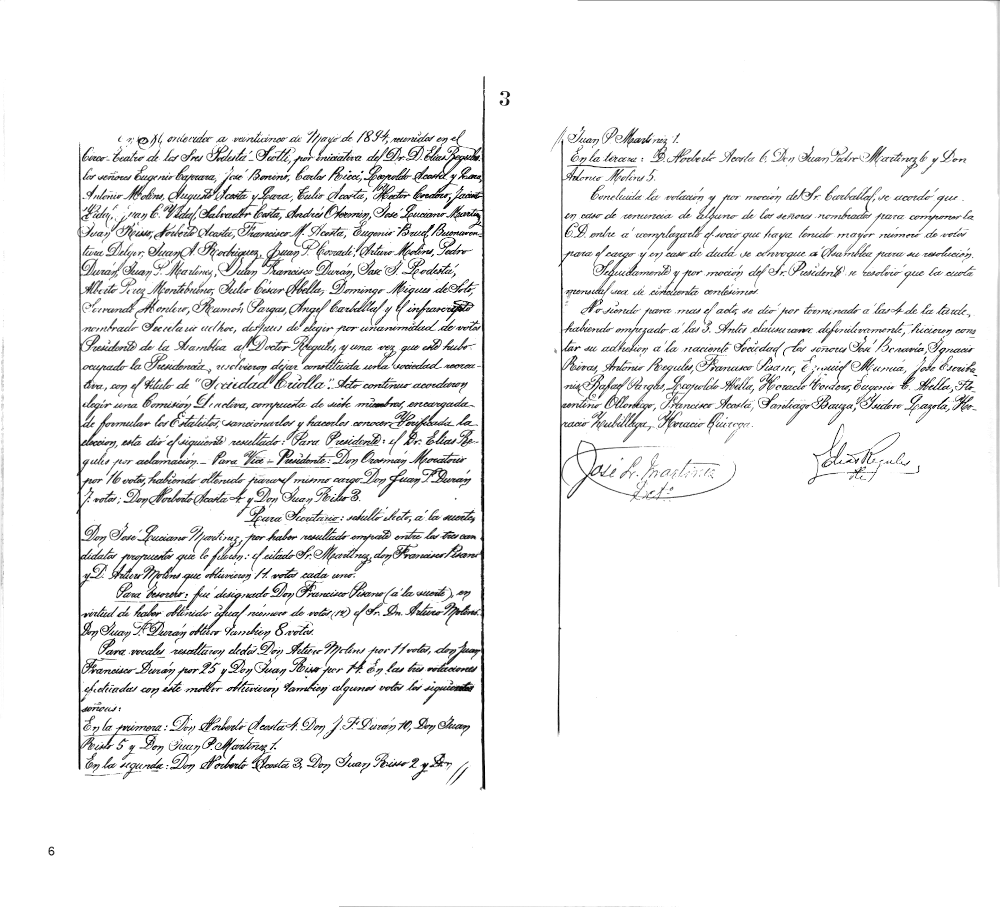 3
Montevideo a veinticinco de Mayo de 1894, reunidos en el
Circo-Teatro de los Sres Podestá-Scotti, por iniciativa del Dr. D. Elías Regules
los señores Eugenio Caprara, José Benins, Carlos Ricci, Leopoldo Acosta y Lara,
Antonio Molins, Augusto Acosta y Lara, Tulio Acosta, Hector Cordero, Jacinto
Vidal, Juan C. Vidal, Salvador Costa, Andrés Overnin, José Luciano Martinez
Juan Risso, Norberto Acosta, Francisco M. Acosta, Eugenio Bruel, Buenaven-
tura Delger, Juan A. Rodriguez, Juan P. Corradi, Arturo Molins, Pedro
Durán, Juan P. Martinez, Juan Francisco Durán, José J. Podestá,
Alberto Perez Montebruno, Julio César Abella, Domingo Miques de Soto,
Servando Montero, Ramón Pargas, Angel Carballal y el infrascripto
nombrado Secretario adhoc, despues de elegir por unanimidad de votos
Presidente de la Asamblea al Doctor Regules, y una vez que este hubo
ocupado la Presidencia, resolvieron dejar constituida una sociedad recrea-
tiva, con el título de "Sociedad Criolla". Acto continuo acordaron
elegir una Comisión Directiva, compuesta de siete miembros, encargada
de formular los Estatutos, sancionarlos y hacerlos conocer. Verificada la
eleccion, esta dió el siguiente resultado: Para Presidente: el Dr. Elías Re-
gules por aclamación. - Para Vice - Presidente: Don Orosman Moratorio
por 16 votos, habiendo obtenido para el mismo cargo Don Juan F. Durán
7 votos; Don Norberto Acosta 4 y Don Juan Risso 3.
Para Secretario: resultó electo, á la suerte,
Don José Luciano Martinez, por haber resultado empate entre los tres can
didatos propuestos que lo fueron: el citado Sr. Martinez, don Francisco Pisano
y D. Arturo Molins que obtuvieron 11 votos cada uno.
Para tesorero: fué designado Don Francisco Pisano (á la suerte), en
virtud de haber obtenido igual número de votos (12) el Sr. Dn. Arturo Molins.
Don Juan F. Durán obtuvo tambien 8 votos.
Para vocales resultaron electos Don Arturo Molins por 11 votos, don Juan
Francisco Durán por 25 y Don Juan Risso por 14. En las tres votaciones
efectuadas con este motivo obtuvieron tambien algunos votos los siguientes
señores:
En la primera: Don Norberto Acosta 4. Don J. F. Durán 10, Don Juan
Risso 5 y Don Juan P. Martinez 1.
En la segunda: Don Norberto Acosta 3, Don Juan Risso 2 y Don //
// Juan P. Martinez 1.
En la tercera: D. Norberto Acosta 6, Don Juan Pedro Martinez 6 y Don
Antonio Molins 5.
Concluida la votación y por moción del Sr. Carballal, se acordó que
en caso de renuncia de alguno de los señores nombrados para componer la
C.D. entre á remplazarle el socio que haya tenido mayor número de votos
para el cargo y en caso de duda se convoque á Asamblea para su resolución.
Seguidamente y por moción del Sr. Presidente se resolvió que la cuota
mensual sea de cincuenta centésimos.
No siendo para mas el acto, se dió por terminado á las 4 de la tarde,
habiendo empezado á las 3. Antes clausurarse definitivamente, hicieron cons
tar su adhesion á la naciente Sociedad los señores José Benavia, Ignacio
Rivas, Antonio Regules, Francisco Pisano, Ezequiel Munúa, José Escriba-
nis, Rafael Parges, Leopoldo Abella, Horacio Cordero, Eugenio C. Abella, Flo-
rentino Olloniego, Francisco Acosta, Santiago Bauzá, Ysidoro Lazola, Ho-
racio Rubillaga, Horacio Quiroga.
José L. Martinez
Sectº
Elías Regules
Pte
6